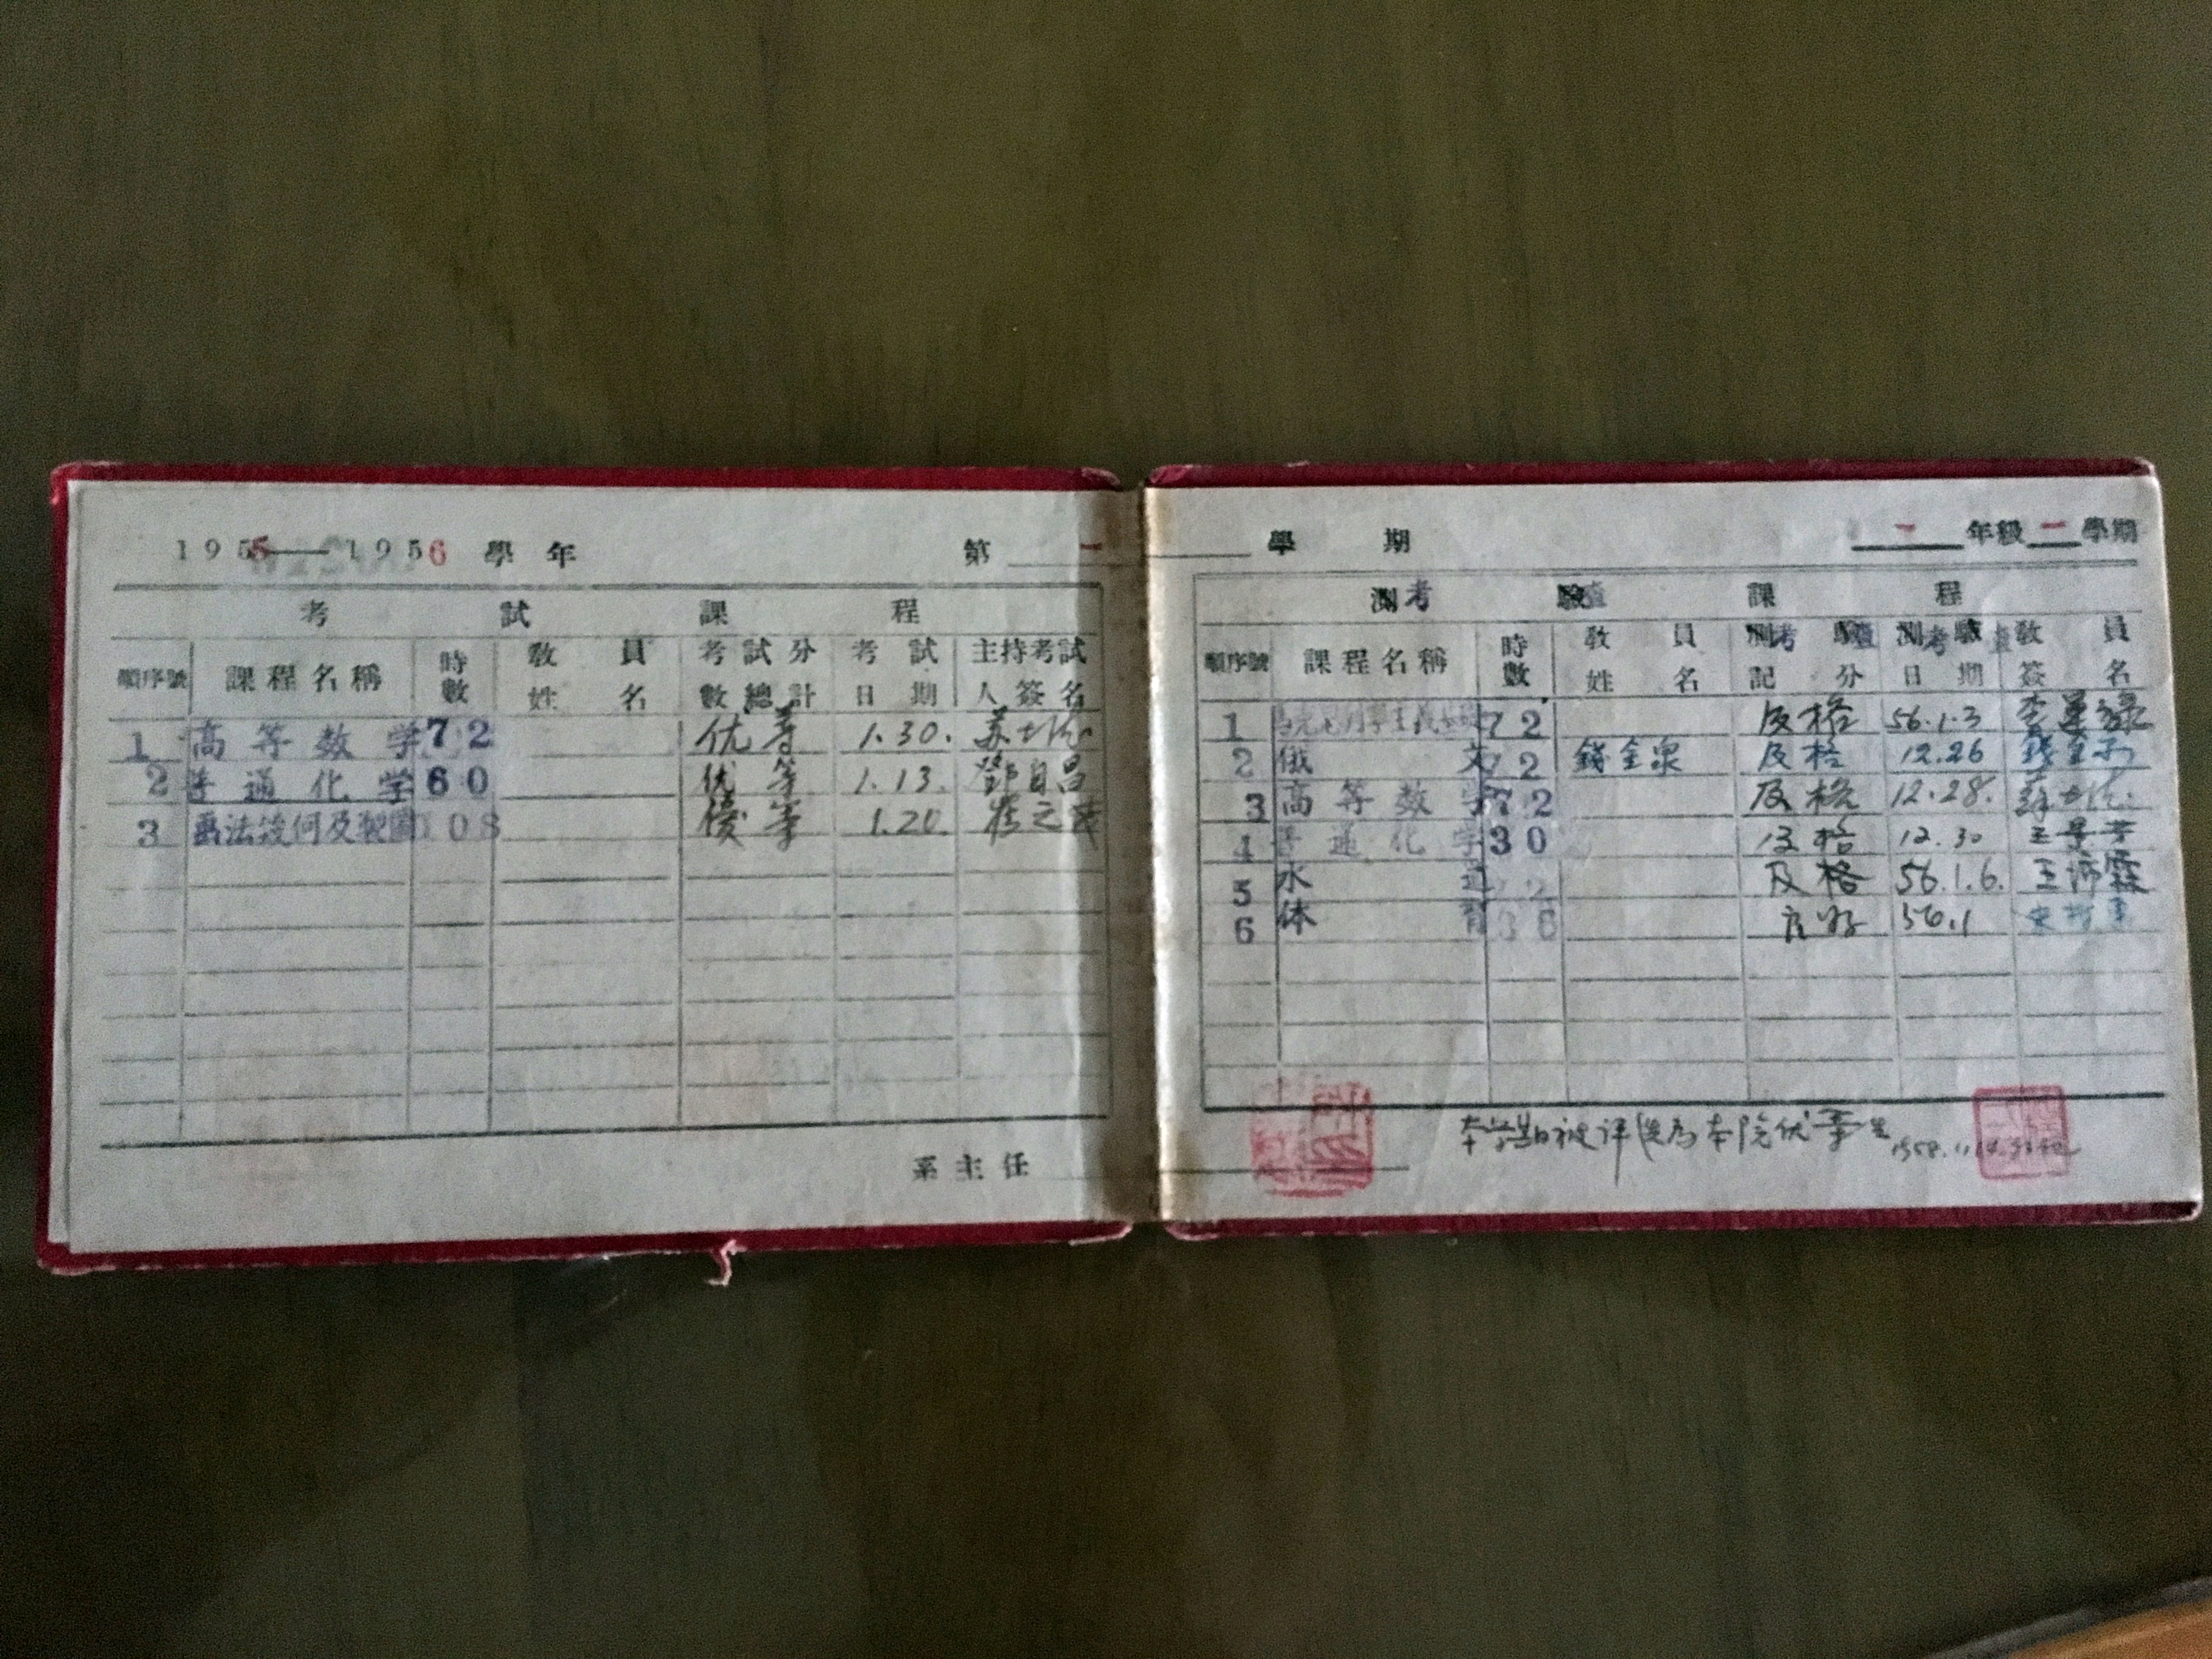 1955—1956 學年 第一
考試課程
順序號 課程名稱 時數 教員姓名 考試分數總計 考試日期 主持考試人簽名
1 高等数学 72 优等 1.30.
2 普通化学 60 优等 1.13. 鄧自昌
3 画法幾何及製圖 108 優等 1.20.
系主任
學期 一年級二學期
測考驗查課程
順序號 課程名稱 時數 教員姓名 測考驗查記分 測考驗查日期 教員簽名
1 72 及格 56.1.3
2 俄文 72 錢金泉 及格 12.26
3 高等数学 72 及格 12.28.
4 普通化学 30 及格 12.30
5 水 72 及格 56.1.6.
6 体育 36 良好 56.1
本学期被评选为本院优等生